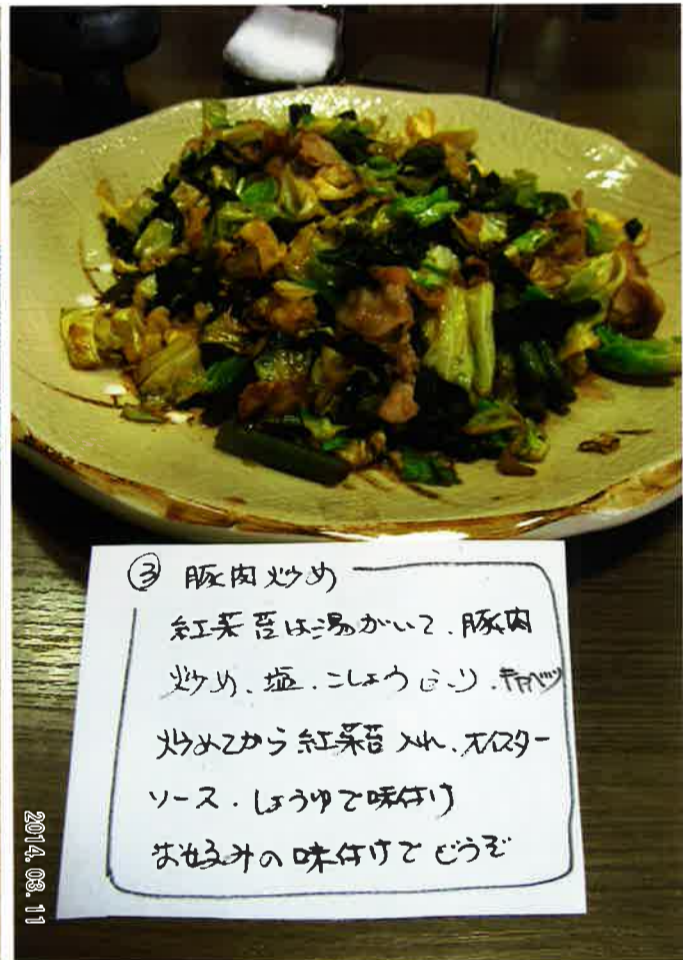 ③ 豚肉炒め
紅菜苔は湯がいて、豚肉
炒め、塩、こしょう ふり、キャベツ
炒めてから紅菜苔入れ、オイスター
ソース、しょうゆで味付け
お好みの味付けでどうぞ
2014.03.11